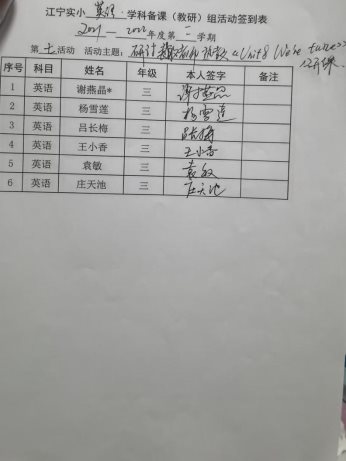 江宁实小 英语 学科备课（教研）组活动签到表
2021 — 2022 年度第 二 学期
第 七 活动 活动主题: 研讨 《Unit8 We're twins》公开课.
序号 科目 姓名 年级 本人签字 备注
1 英语 谢燕晶* 三 谢燕晶
2 英语 杨雪莲 三 杨雪莲
3 英语 吕长梅 三 吕长梅
4 英语 王小香 三 王小香
5 英语 袁敏 三 袁敏
6 英语 庄天池 三 庄天池